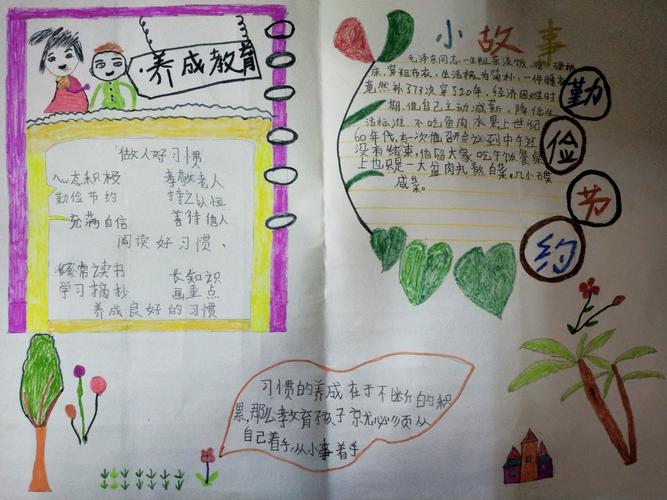 养成教育
做人好习惯
心态积极 孝敬老人
勤俭节约 持之以恒
充满自信 善待他人
阅读好习惯、
经常读书 长知识
学习摘抄 画重点
养成良好的习惯
小故事
毛泽东同志一生粗茶淡饭、睡硬板
床、穿粗布衣，生活极为简朴，一件睡衣
竟然补了73次穿了20年，经济困难时
期，他自己主动减薪、降低生
活标准、不吃鱼肉水果上世纪
60年代，有一次他召开会议到中午还
没有结束，他留大家吃午饭餐桌
上也只是一大盆肉丸熬白菜。几小碟
咸菜。
勤
俭
节
约
习惯的养成在于不断的积
累，那么教育孩子京尤必必页从
自己着手，从小事着手